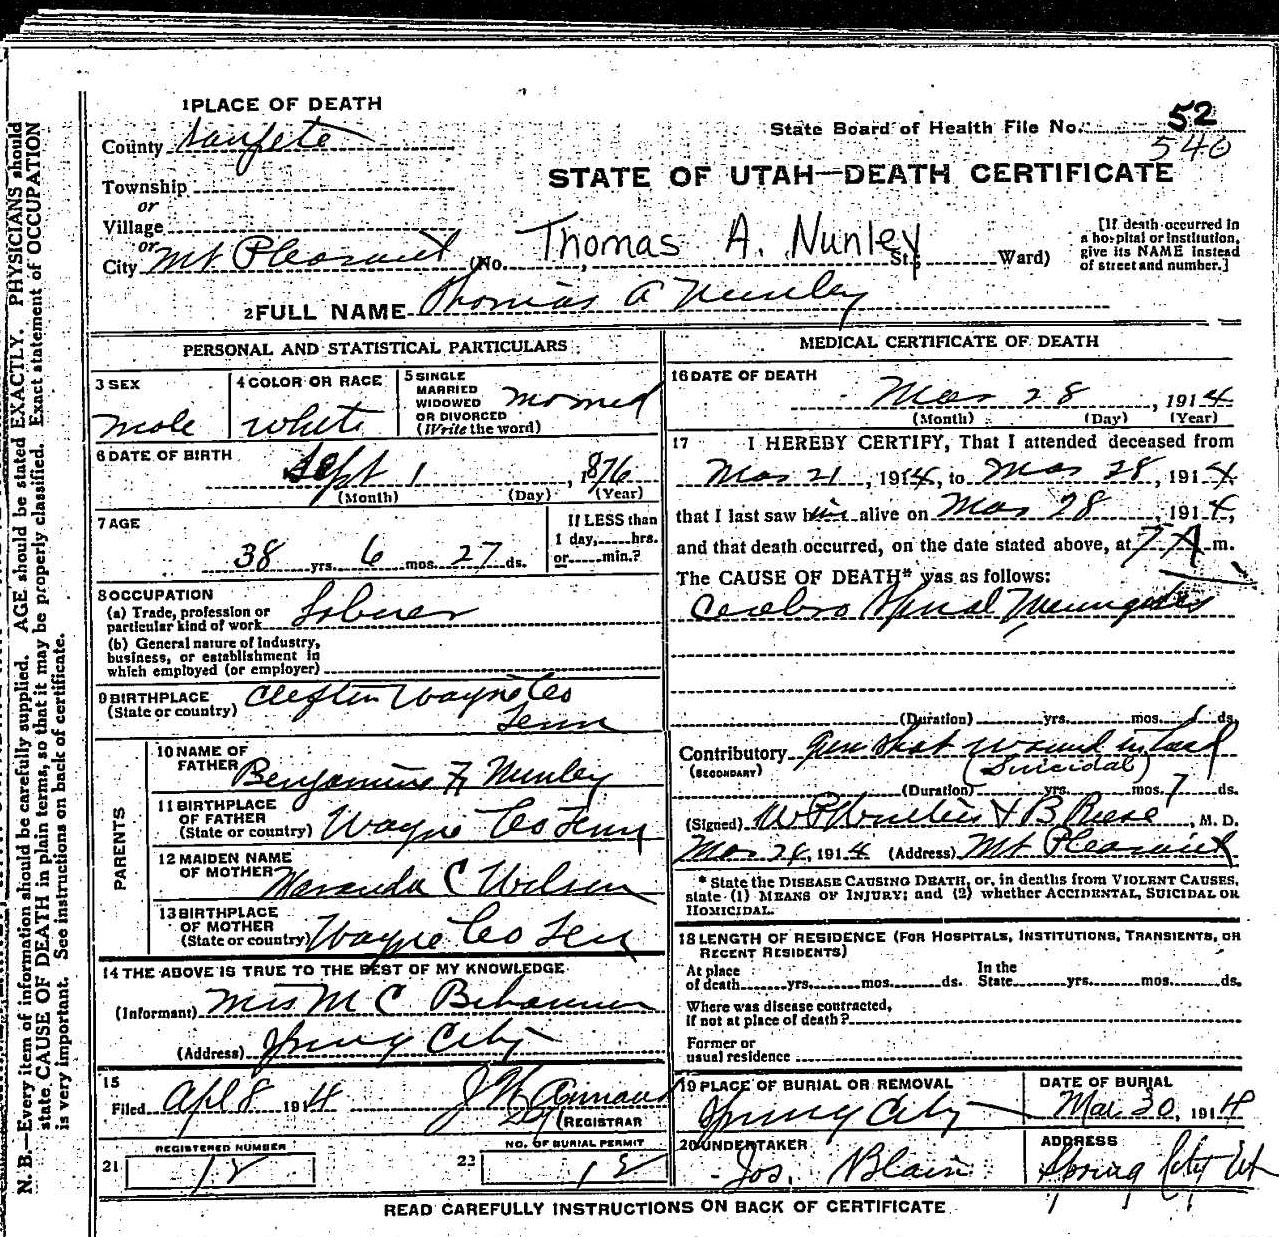 1 PLACE OF DEATH
County Sanpete
Township
or
Village
or
City Mt Pleasant (No. St., Ward)
Thomas A. Nunley
[If death occurred in
a hospital or institution,
give its NAME instead
of street and number.]
State Board of Health File No. 52
540
STATE OF UTAH—DEATH CERTIFICATE
2 FULL NAME Thomas A Nunley
PERSONAL AND STATISTICAL PARTICULARS
3 SEX
male
4 COLOR OR RACE
white
5 SINGLE
MARRIED
WIDOWED
OR DIVORCED
(Write the word)
6 DATE OF BIRTH
Sept 1, 1876
(Month) (Day) (Year)
7 AGE
38 yrs. 6 mos. 27 ds.
If LESS than
1 day, hrs.
or min.?
8 OCCUPATION
(a) Trade, profession or
particular kind of work Laborer
(b) General nature of industry,
business, or establishment in
which employed (or employer)
9 BIRTHPLACE
(State or country) Clifton Wayne Co
Tenn
PARENTS
10 NAME OF
FATHER Benjamine F Nunley
11 BIRTHPLACE
OF FATHER
(State or country) Wayne Co Tenn
12 MAIDEN NAME
OF MOTHER C Wilson
13 BIRTHPLACE
OF MOTHER
(State or country) Wayne Co Ten
14 THE ABOVE IS TRUE TO THE BEST OF MY KNOWLEDGE
(Informant) Mrs M C
(Address) Spring City
15
Filed Apl 8 1914
REGISTRAR
REGISTERED NUMBER
21 18
NO. OF BURIAL PERMIT
22 18
MEDICAL CERTIFICATE OF DEATH
16 DATE OF DEATH
Mar 28, 1914
(Month) (Day) (Year)
17 I HEREBY CERTIFY, That I attended deceased from
Mar 21, 1914, to Mar 28, 1914
that I last saw him alive on Mar 28, 1914,
and that death occurred, on the date stated above, at 7 A m.
The CAUSE OF DEATH* was as follows:
Cerebro Spinal Meningitis
(Duration) yrs. mos. ds.
Contributory gun shot wound in head
(SECONDARY) (Suicidal)
(Duration) yrs. mos. 7 ds.
(Signed) M. D.
Mar 1914 (Address) Mt Pleasant
* State the DISEASE CAUSING DEATH, or, in deaths from VIOLENT CAUSES,
state (1) MEANS OF INJURY; and (2) whether ACCIDENTAL, SUICIDAL OR
HOMICIDAL.
18 LENGTH OF RESIDENCE (FOR HOSPITALS, INSTITUTIONS, TRANSIENTS, OR
RECENT RESIDENTS)
At place
of death yrs. mos. ds.
In the
State yrs. mos. ds.
Where was disease contracted,
if not at place of death?
Former or
usual residence
19 PLACE OF BURIAL OR REMOVAL
Spring City
DATE OF BURIAL
Mar. 30, 1914
20 UNDERTAKER
Jos. Blain
ADDRESS
Spring City Ut
READ CAREFULLY INSTRUCTIONS ON BACK OF CERTIFICATE
N. B.—Every item of information should be carefully supplied. AGE should be stated EXACTLY. PHYSICIANS should
state CAUSE OF DEATH in plain terms, so that it may be properly classified. Exact statement of OCCUPATION
is very important. See instructions on back of certificate.